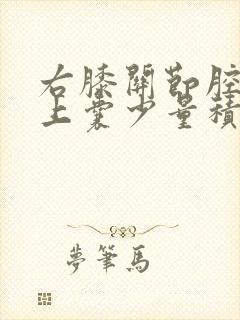 右膝關節腔
上囊少量積
夢筆馬